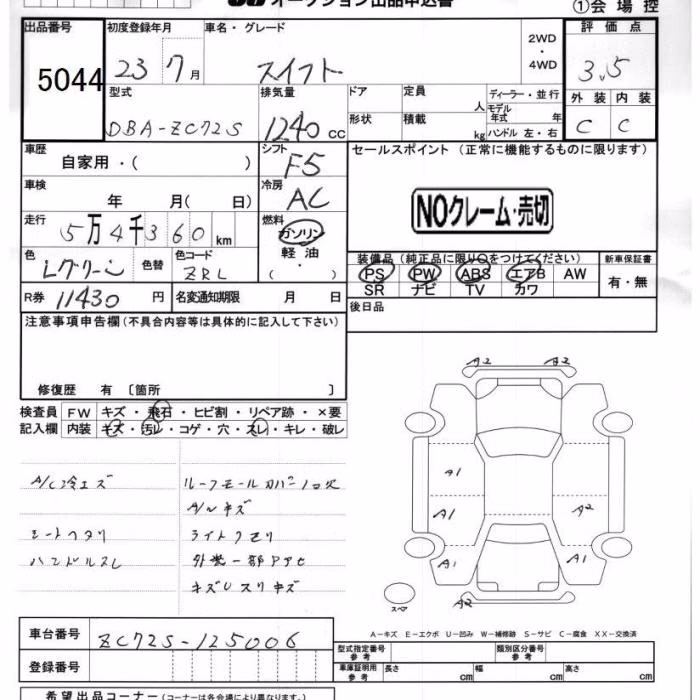 オークション出品申込書
①会場控
出品番号
初度登録年月
車名・グレード
評価点
5044
23 7月
スイフト
2WD
・
4WD
3.5
型式
排気量
ドア
定員
人
ディーラー・並行
外装 内装
DBA-ZC72S
1240 cc
形状
積載
kg
モデル年式 年
ハンドル 左・右
C C
車歴
自家用・( )
シフト
F5
セールスポイント (正常に機能するものに限ります)
車検
年 月( 日)
冷房
AC
NOクレーム・売切
走行
5万4千360km
燃料
ガソリン
軽油
( )
色
Lグリーン
色替
色コード
ZRL
装備品(純正品に限り○をつけてください)
新車保証書
PS PW ABS エアB AW
SR ナビ TV カワ
有・無
R券 11430 円
名変通知期限 月 日
後日品
注意事項申告欄(不具合内容等は具体的に記入して下さい)
修復歴 有 〔箇所 〕
検査員 FW キズ・飛石・ヒビ割・リペア跡・×要
記入欄 内装 キズ・汚レ・コゲ・穴・スレ・キレ・破レ
A2 A2
A1
A/C冷エズ
A/Wキズ
A1
A2
シートヘタリ
ライトクモリ
ハンドルスレ
A1
A1
キズUスリキズ
A2
スペア
A－キズ E－エクボ U－凹み W－補修跡 S－サビ C－腐食 XX－交換済
車台番号
ZC72S-125006
型式指定番号
参考
類別区分番号
参考
登録番号
車庫証明用
参考
長さ cm
幅 cm
高さ cm
希望出品コーナー(コーナーは各会場により異なります。)